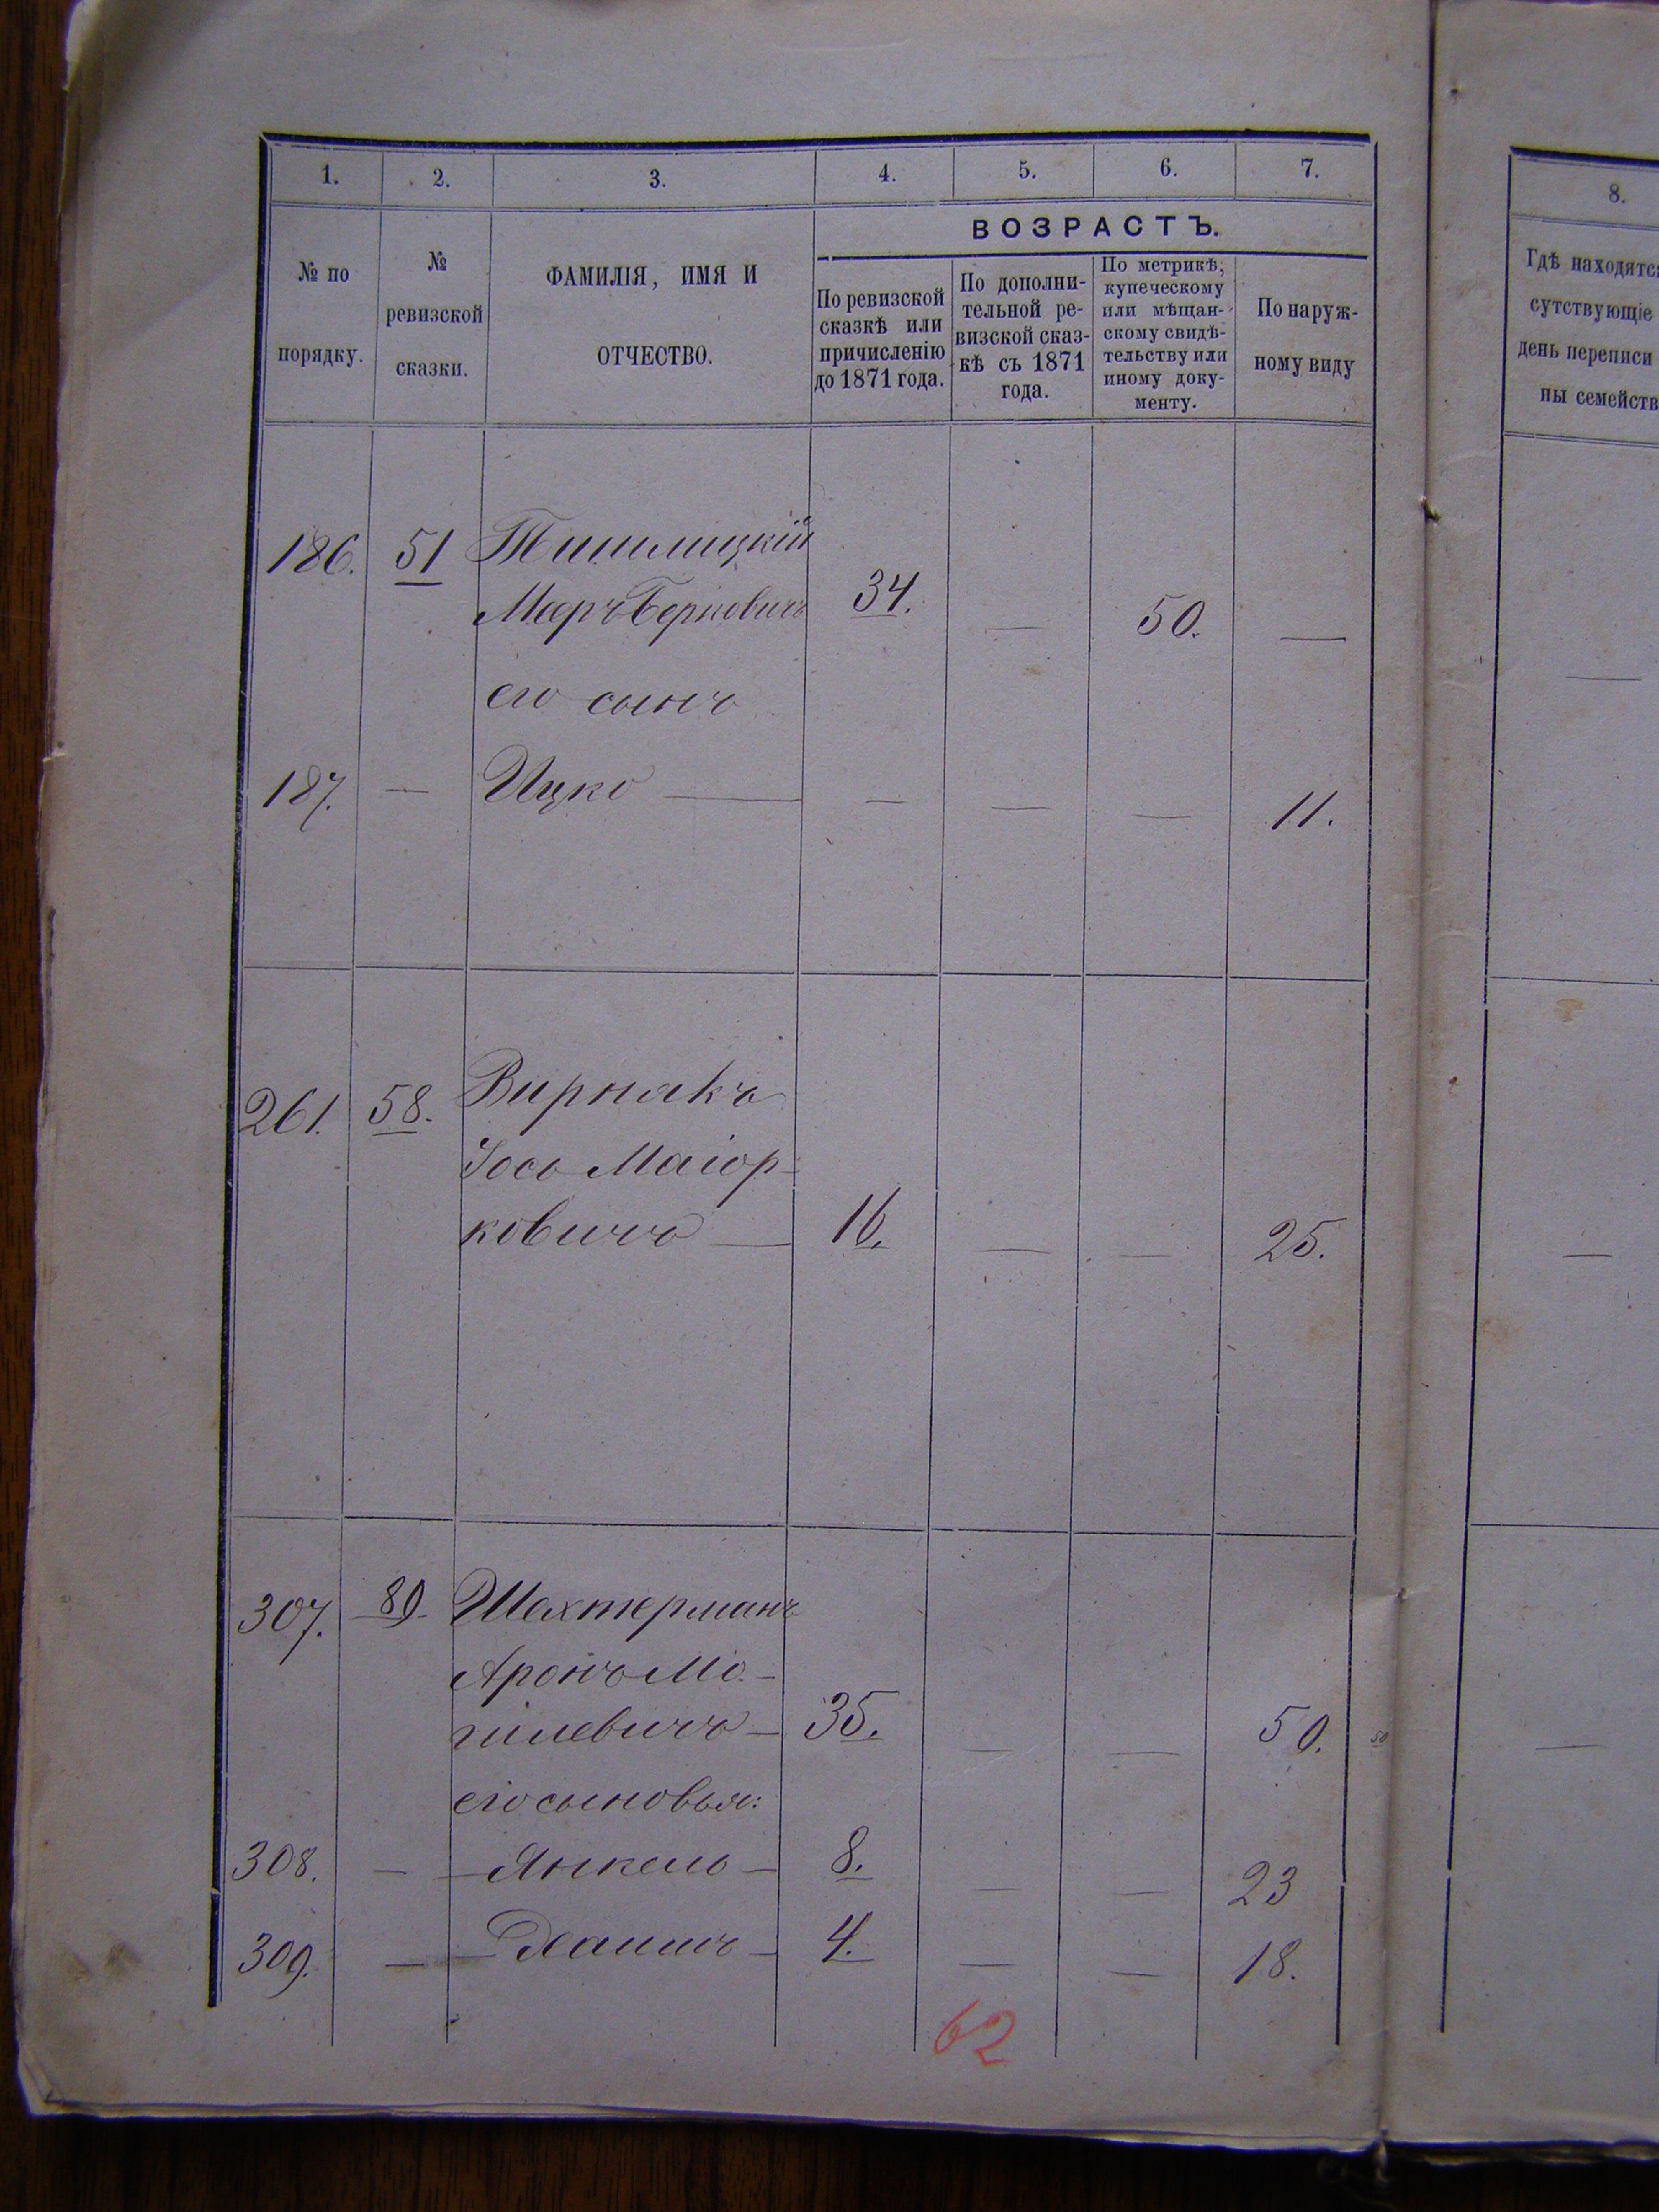 1. 2. 3. 4. 5. 6. 7.
№ по
порядку.
№
ревизской
сказки.
ФАМИЛІЯ, ИМЯ И
ОТЧЕСТВО.
ВОЗРАСТЪ.
По ревизской
сказкѣ или
причисленію
до 1871 года.
По дополни-
тельной ре-
визской сказ-
кѣ съ 1871
года.
По метрикѣ,
купеческому
или мѣщан-
скому свидѣ-
тельству или
иному доку-
менту.
По наруж-
ному виду
186. 51
Мееръ Берковичъ 34. — 50. —
его сынъ
187. — Ицко — — — — 11.
261. 58. Вирникъ
Іось Маіор-
ковичъ — 16. — — 25.
307. 89. Шахтерманъ
Аронъ Мо-
шлевичъ — 35. — — 50. 50
его сыновья:
308. — Янкель — 8. — — 23
309. — Хаимъ — 4. — — 18.
62
8.
Гдѣ находятс
сутствующіе
день переписи
ны семейств